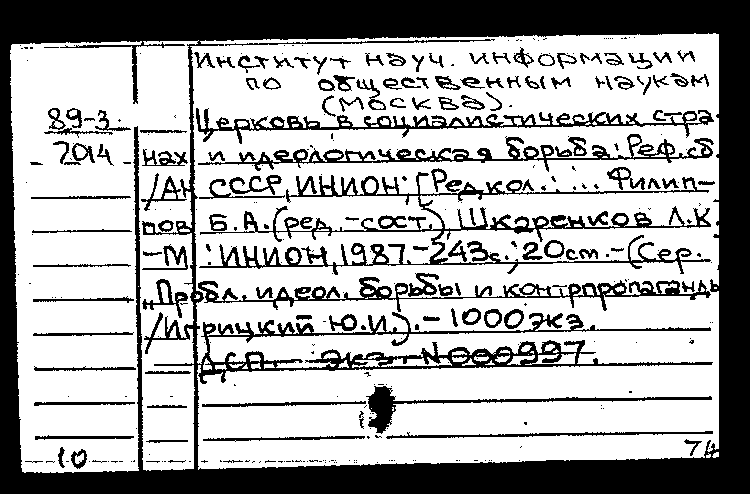 Институт науч. информации
по общественным наукам
(Москва).
89-3 Церковь в социалистических стра-
2014 нах и идеологическая борьба: Реф. сб.
/АН СССР, ИНИОН; [Редкол.: ... Филип-
пов Б.А. (ред.-сост.), Шкаренков Л.К.
-М.: ИНИОН, 1987.-243с.; 20см.-(Сер.
"Пробл. идеол. борьбы и контрпропаганды
/Игрицкий Ю.И.).-1000экз.
ДСП.- экз. N000997.
10 74